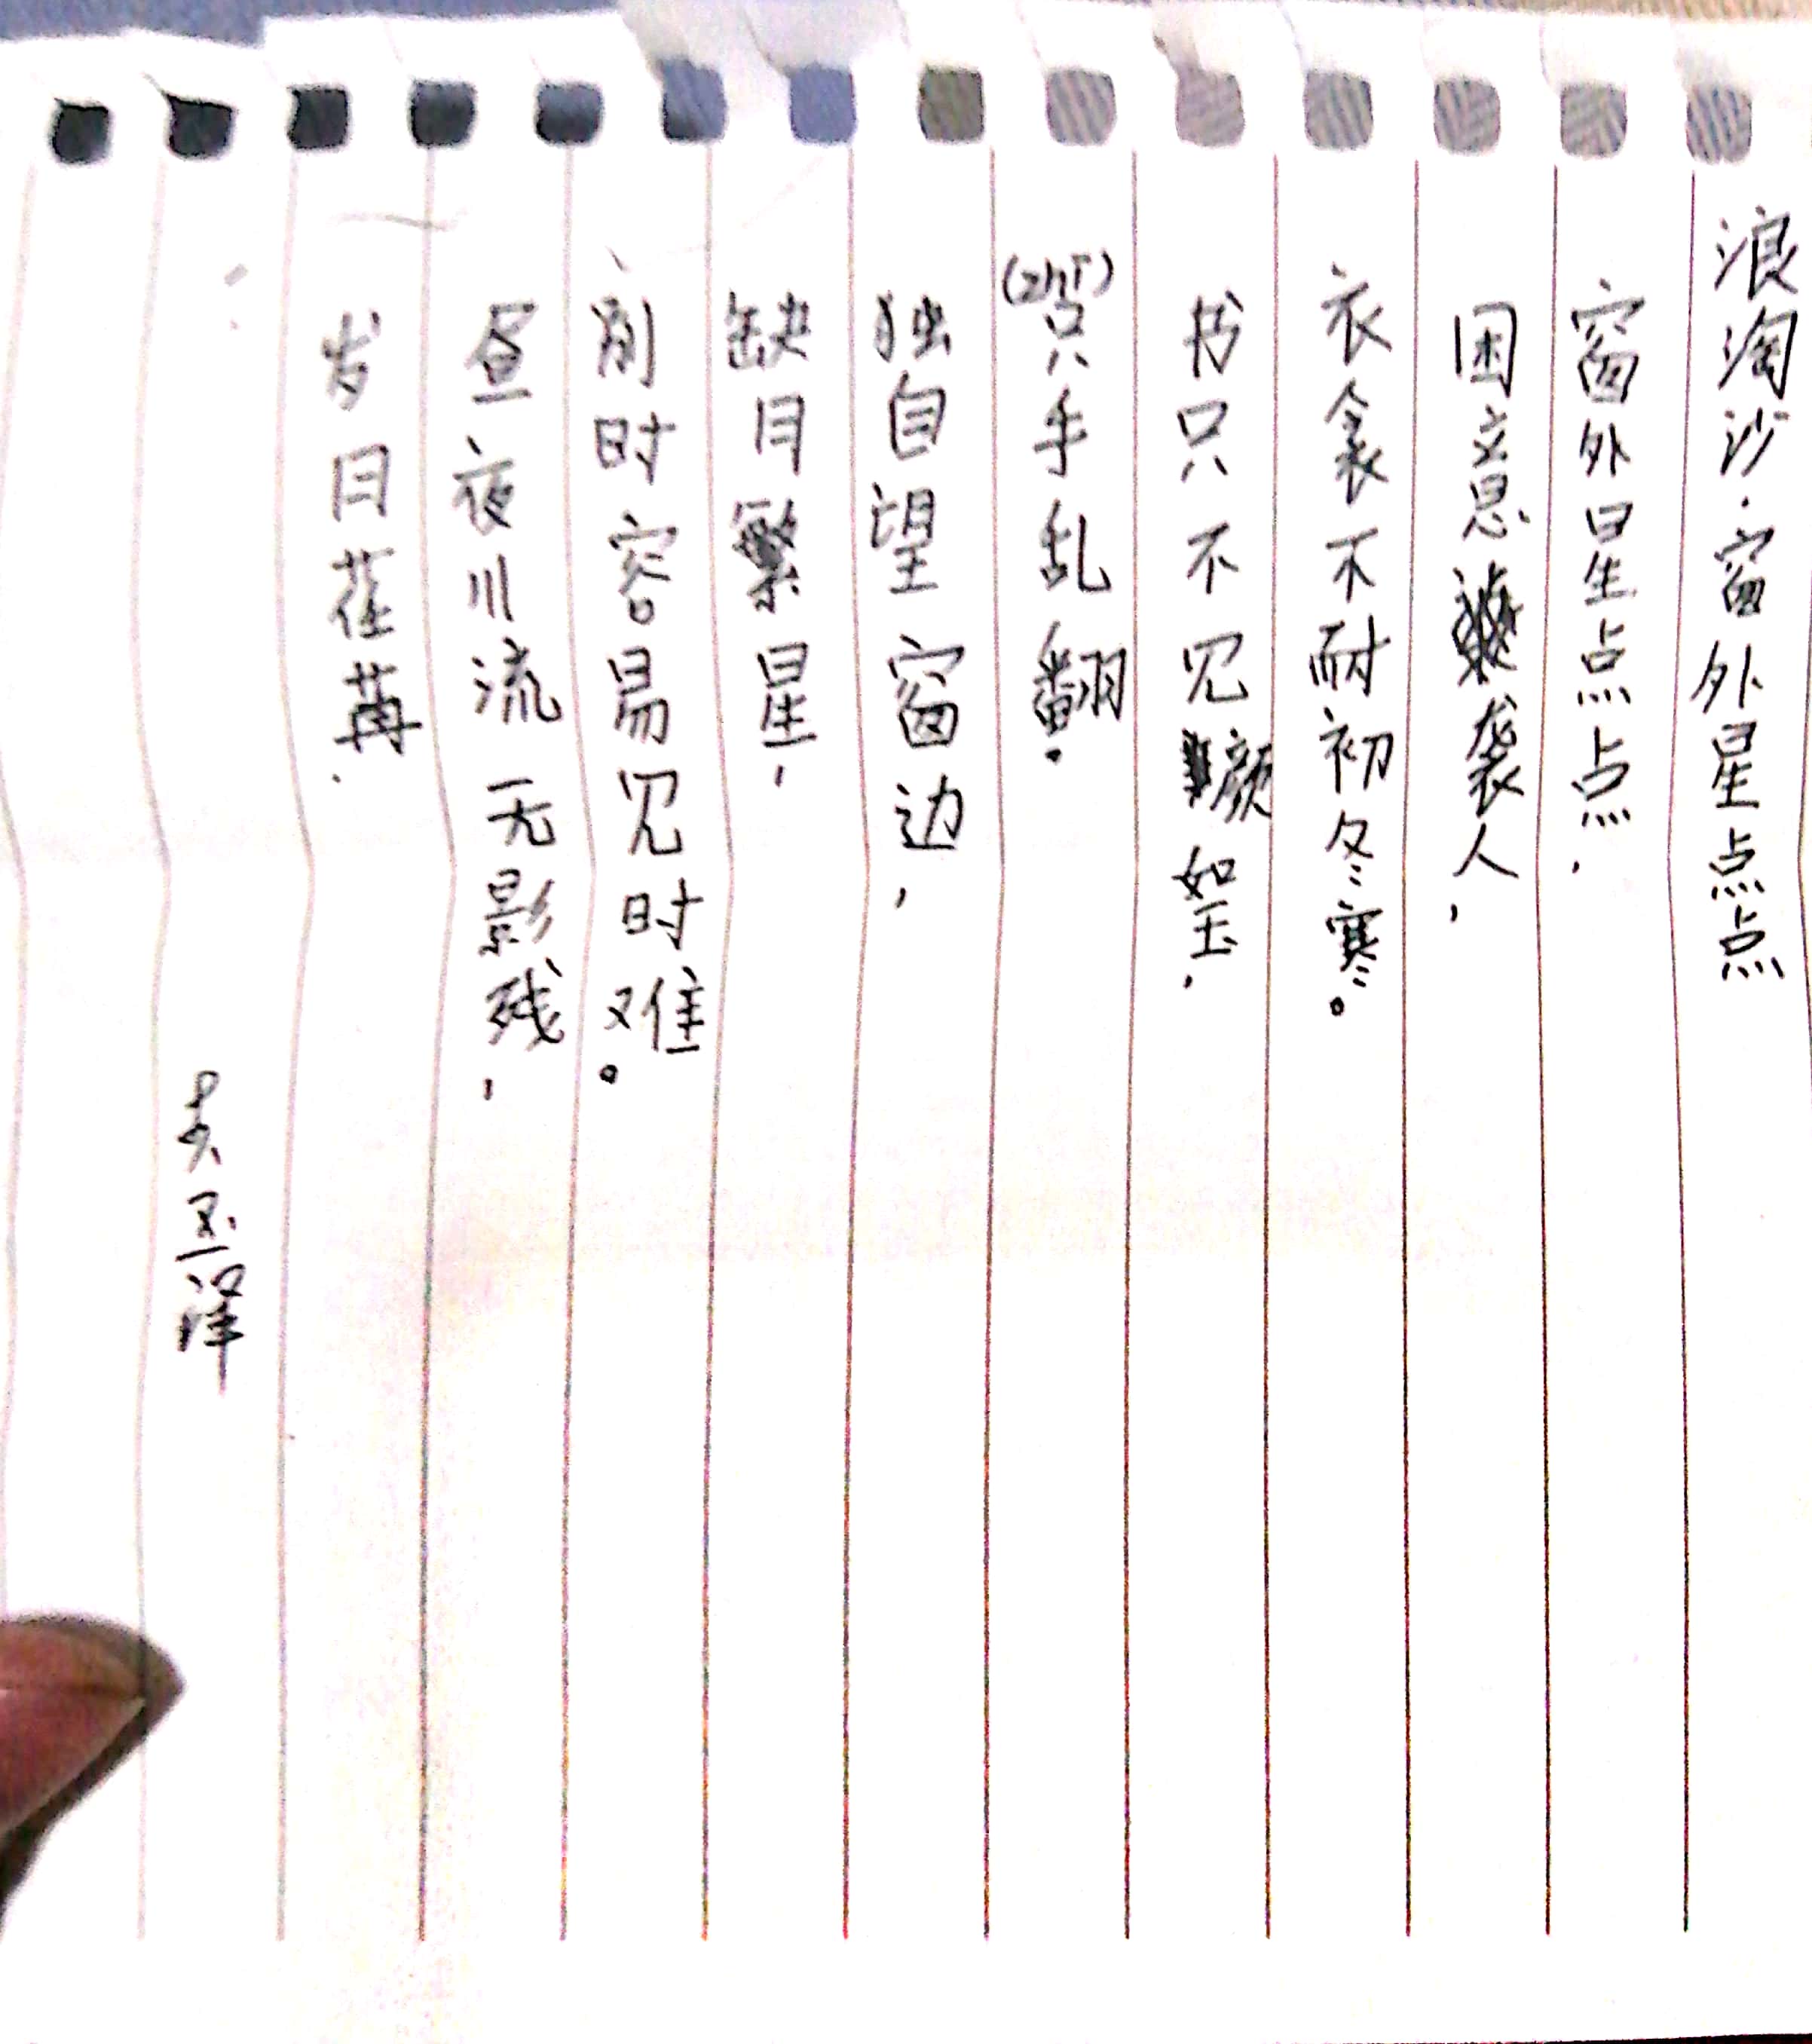 浪淘沙·窗外星点点
窗外星点点，
困意袭人，
衣衾不耐初冬寒。
书只不见颜如玉，
只手乱翻。
独自望窗边，
缺月繁星，
别时容易见时难。
昼夜川流无影残，
岁月荏苒.